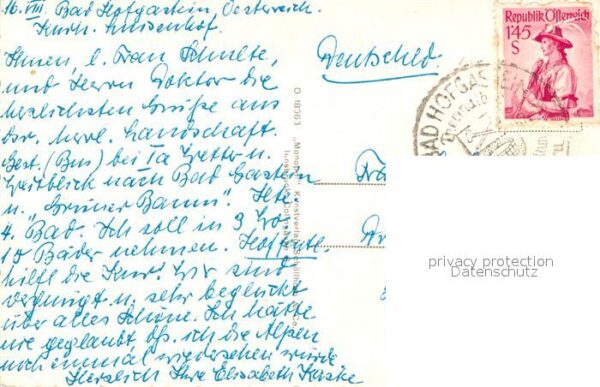 16. VIII. Bad Hofgastein, Oesterreich.
Kurh.
Ihnen, l. Frau Schulte,
und Herrn Doktor die
herzlichsten Grüße aus
dsr. herrl. Landschaft.
Gest. (Bus) bei Ia Wetter u.
Weitblick nach Bad Gastein
u. "Grüner Baum". Hte
4. Bad. Ich soll in 3 Wo
10 Bäder nehmen. Hoffentl.
hilft die Kur! Wir sind
vergnügt u. sehr beglückt
über alles Schöne. Ich hätte
nie geglaubt, dß. ich die Alpen
noch einmal wiedersehen würde
Herzlich Ihre Elisabeth
Deutschld.
Republik Österreich
1'45
S
BAD HOFGASTEIN
O 18363
"Monopol" Kunstverlag
privacy protection
Datenschutz